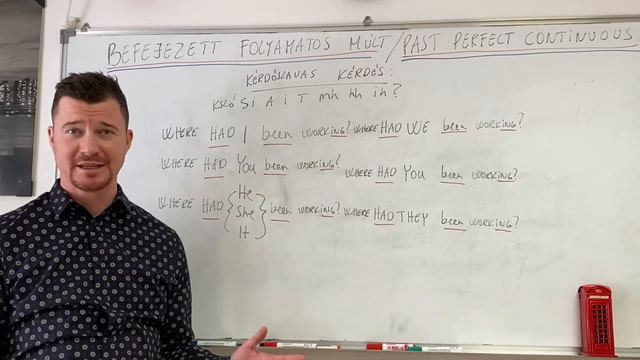 BEFEJEZETT FOLYAMATOS MÚLT / PAST PERFECT CONTINUOUS
KÉRDŐSZAVAS KÉRDÉS:
KSZÓ SI A I T mh hh ih?
WHERE HAD I been working? WHERE HAD WE been working?
WHERE HAD YOU been working? WHERE HAD YOU been working?
WHERE HAD { He She It } been working? WHERE HAD THEY been working?